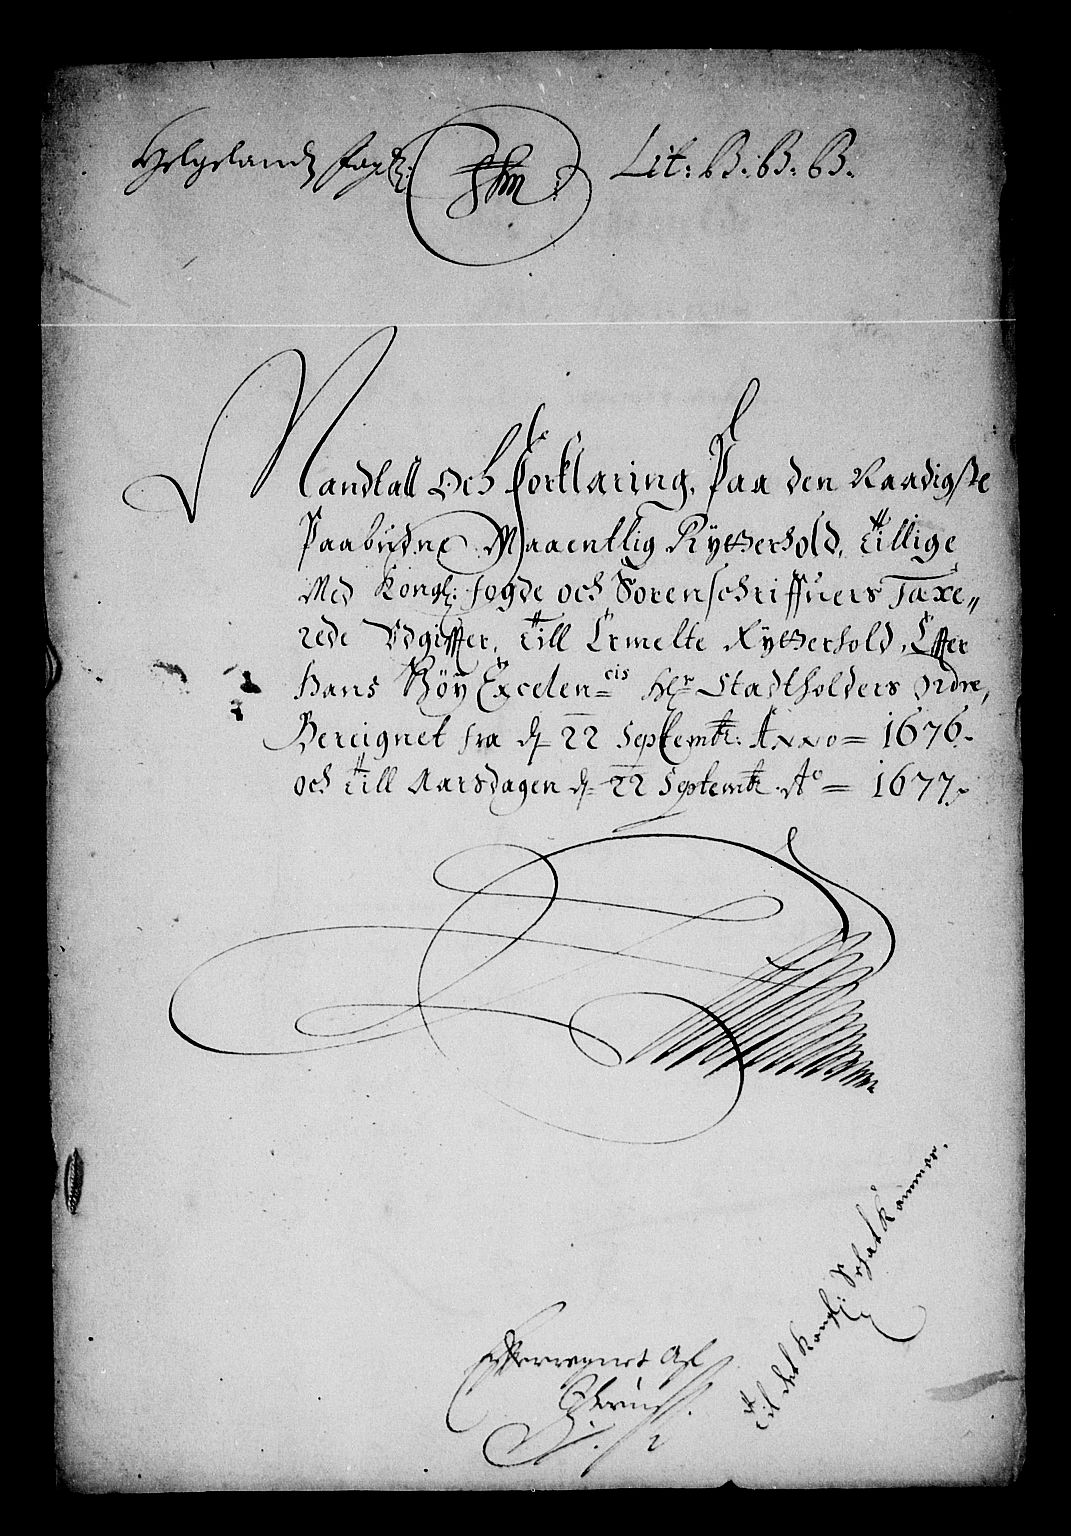 Helgelands fogt: Lit: B: B: B.
Mandtall Och Forklaring, Paa den Naadigste
Paabudne Maaentlig Rytterhold, tillige
Med Kongl: fogde och Sorenschriffuers Taxe„
rede Udgiffter, till Ermelte Rytterhold, Effter
Hans Höy Excelencis Hr Stadtholders Ordre,
Bereignet fra d 22 Septembr: Anno = 1676.
och till Aarsdagen d 22 Septembr. Ao = 1677
Til det Kongl: Schatkammer.
Effterregnet Af